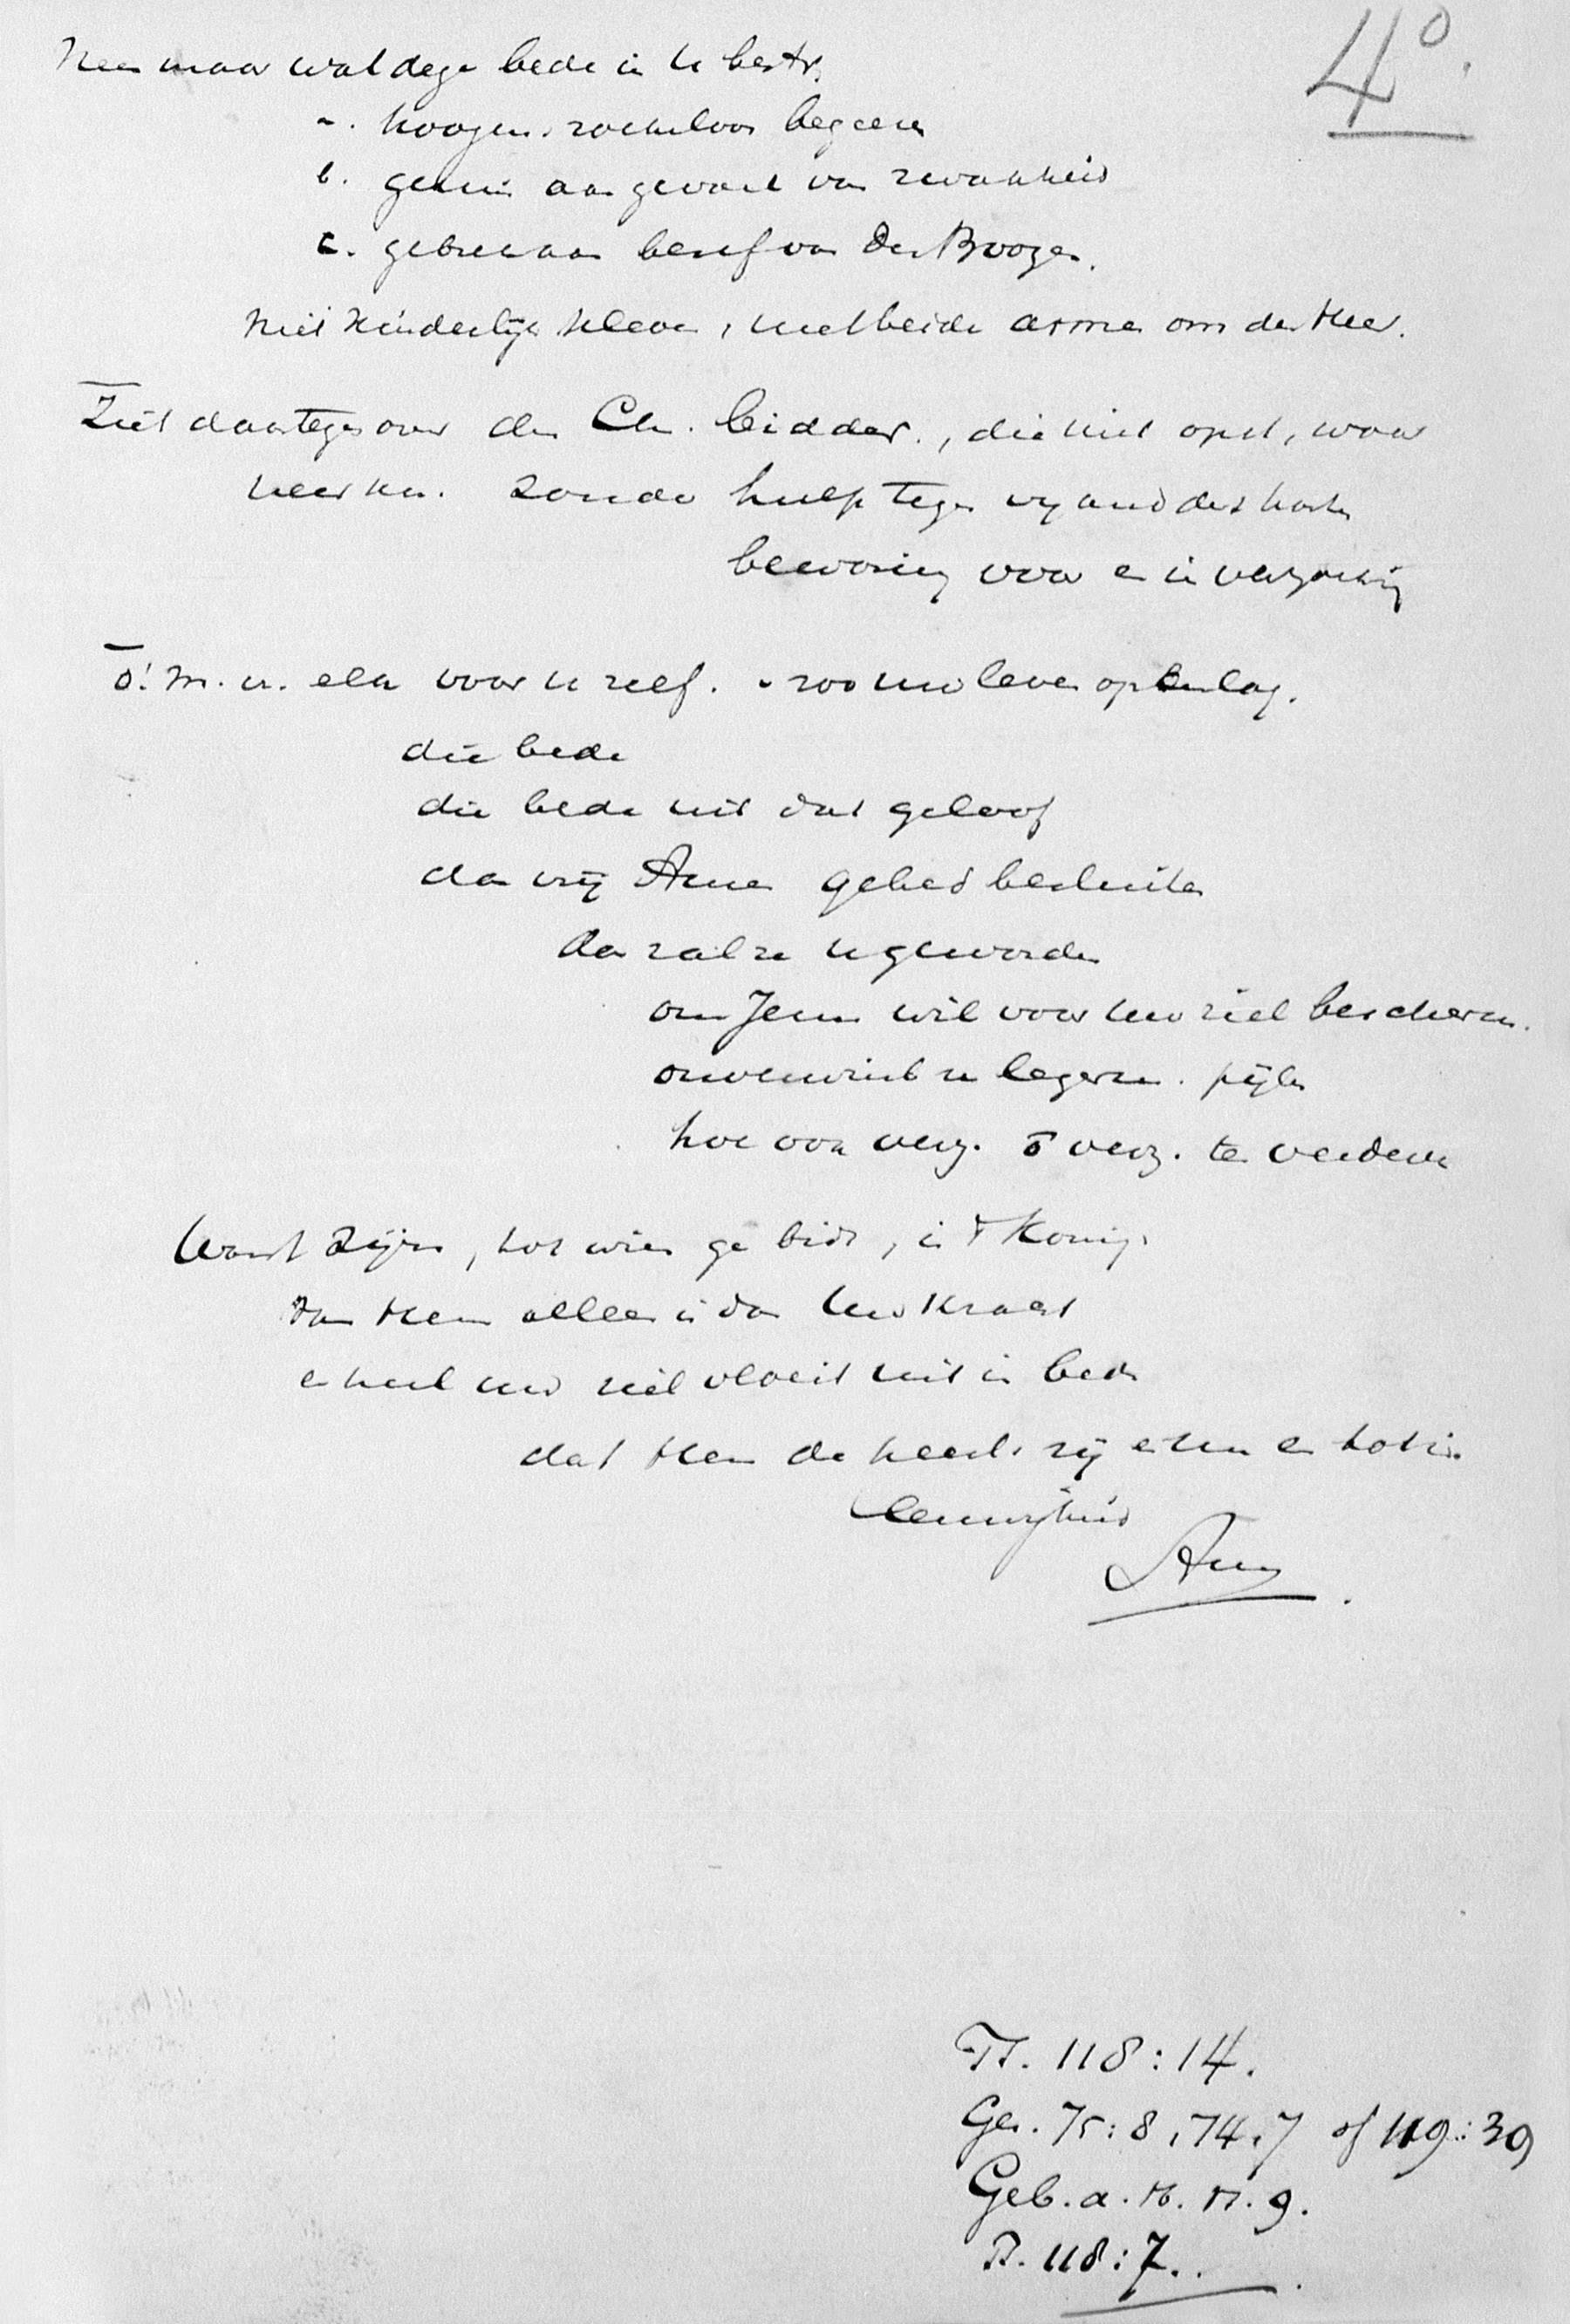 4°.
Neen maar wat deze bede in U bestr.
a. hoogm. roekeloos begeeren
b. gemis aan gevoel van zwakheid
c. gebrek aan besef van den Booze.
niet kinderlijk kleven, met beide armen om den Heer.
Ziet daartegenover den Chr. bidder, die niet opst, waar
neerkn. zonde hulp tegen vijand des harten
bewaring voor en in verzoeking
o! m. v. elk voor u zelf. zoo uw leven op
die bede
die bede uit dat geloof
dan vrij Amen gebed besluiten
dan zal ze u geworden
om Jezus wil voor uw ziel bescherm.
pijlen
hoe ook verz. o verz. te
Want Zijn, tot wien ge bidt, is 't Konin.
Van Hem alleen is dan Uw Kracht
en heel uw ziel vloeit uit in bede
dat Hem de heerl. zij en tot in
Eeuwigheid
Amen.
Ps. 118:14.
Gez. 75:8, 74:7 of 119:39
Geb. a. H. H. 9.
Ps. 118:7.